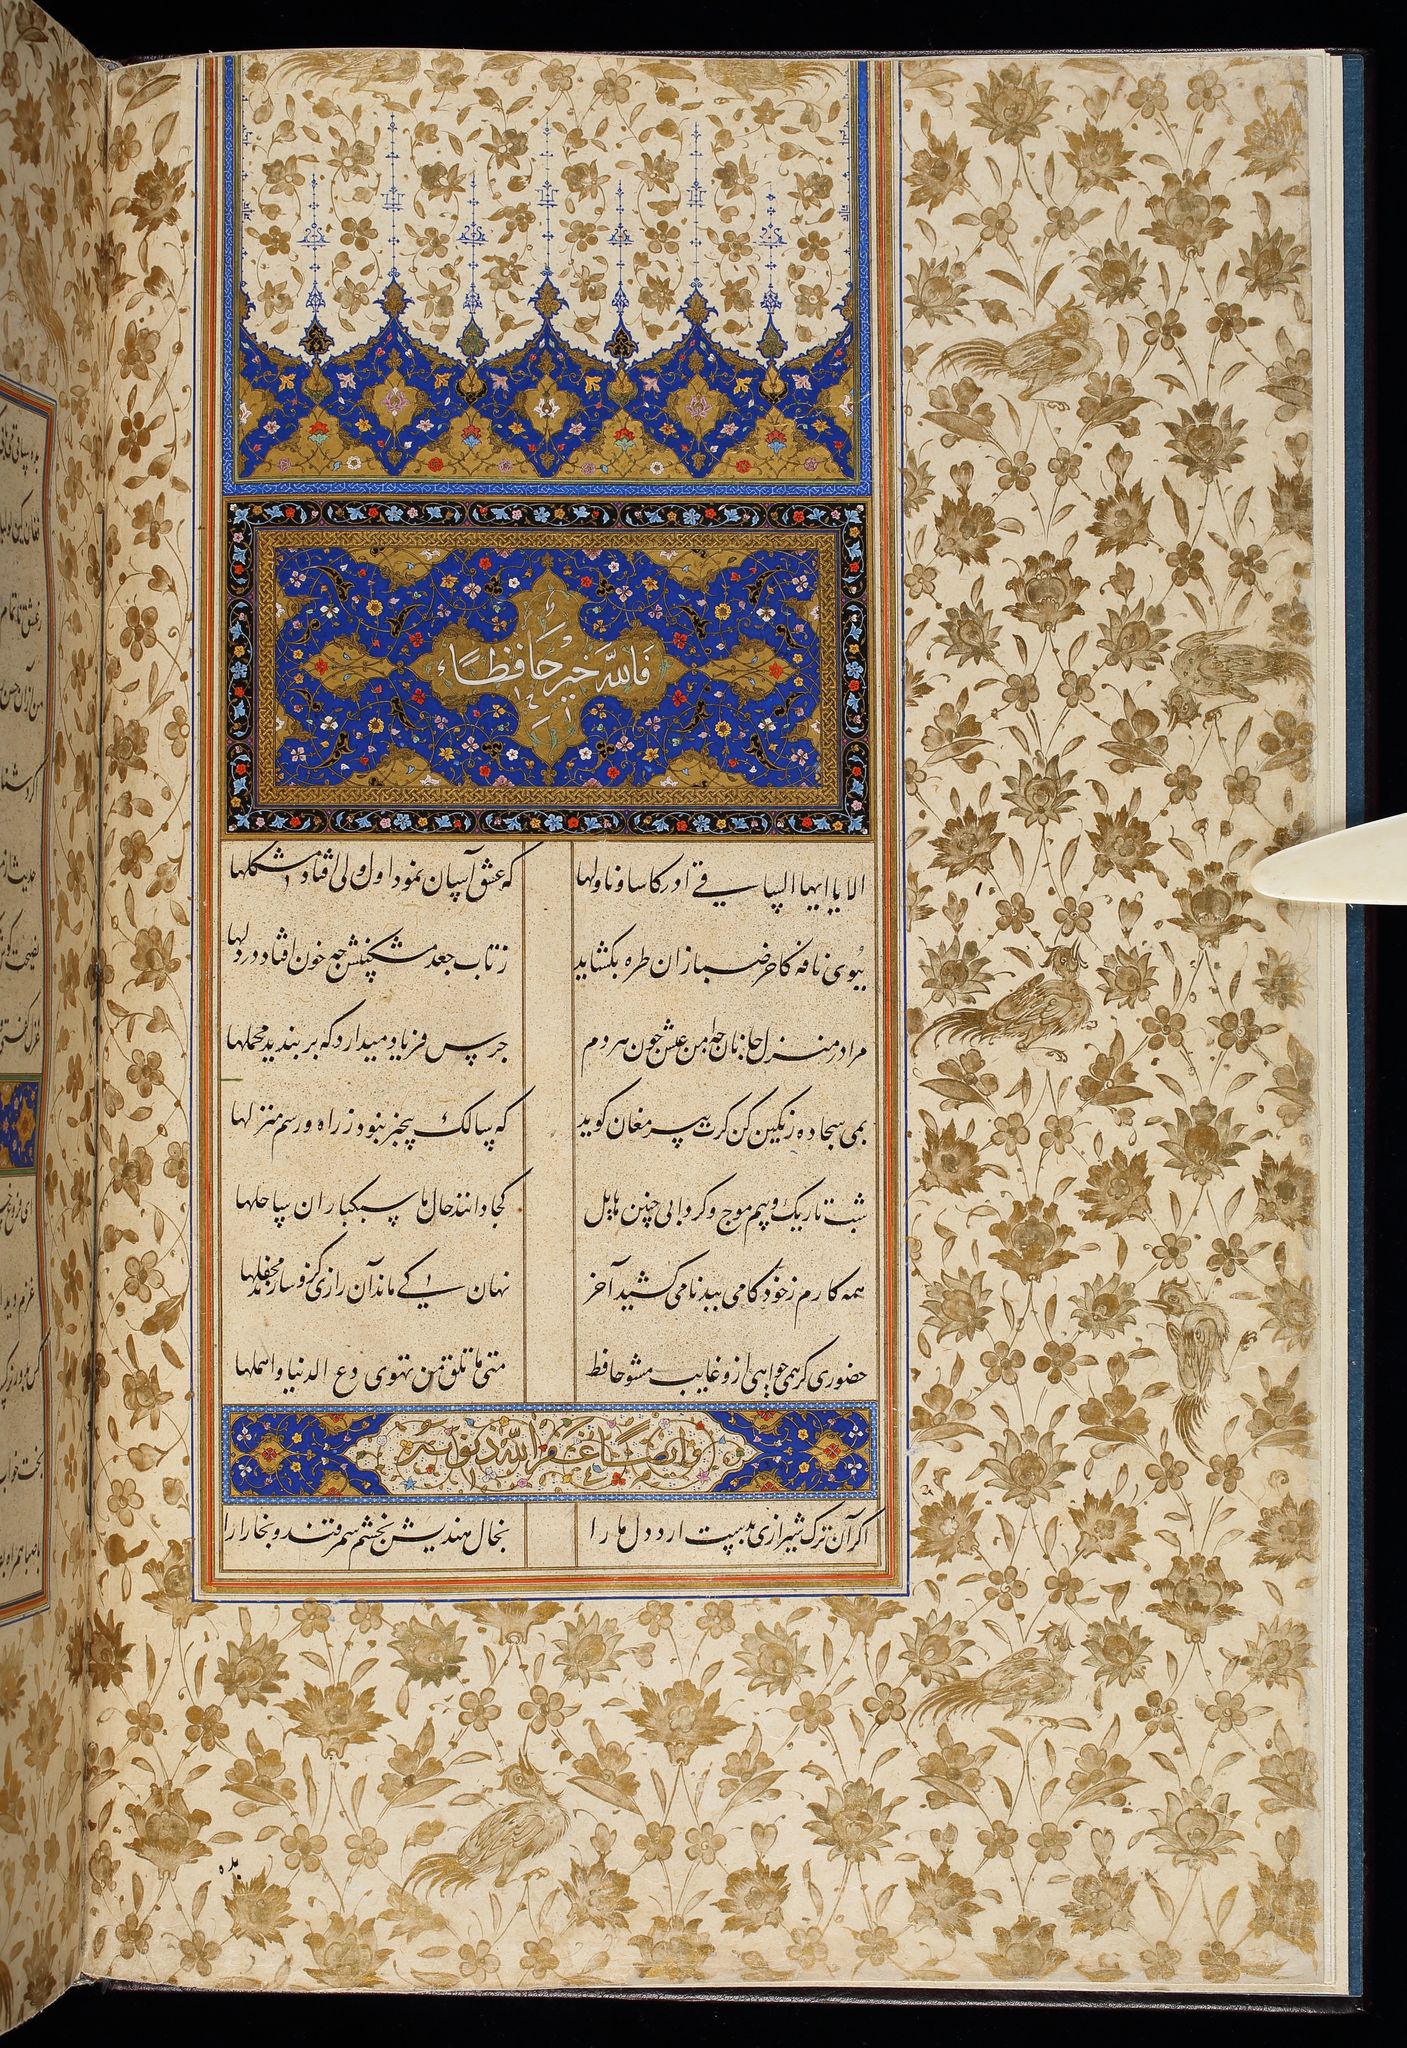 فالله خیر حافظاً
الا یا ایها الساقی ادر کاسا و ناولها
که عشق آسان نمود اول ولی افتاد مشکلها
ببوی نافه کاخر صبا زان طره بکشاید
ز تاب جعد مشکینش چه خون افتاد در دلها
مرا در منزل جانان چه امن عیش چون هر دم
جرس فریاد میدارد که بربندید محملها
بمی سجاده رنکین کن کرت پیر مغان کوید
که سالک بیخبر نبود ز راه و رسم منزلها
شب تاریک و بیم موج و کردابی چنین هایل
کجا دانند حال ما سبکباران ساحلها
همه کارم ز خود کامی ببدنامی کشید آخر
نهان کی ماند آن رازی کزو سازند محفلها
حضوری کر همی خواهی ازو غایب مشو حافظ
متی ما تلق من تهوی دع الدنیا و اهملها
و ایضاً غفر الله ذنوبه
اکر آن ترک شیرازی بدست ارد دل ما را
بخال هندویش بخشم سمرقند و بخارا را
بده